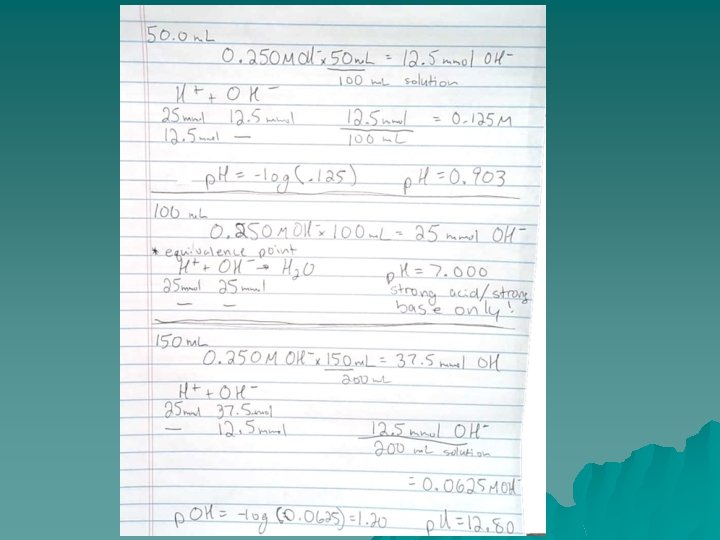 50.0 mL
0.250M OH⁻ x 50mL = 12.5 mmol OH⁻
100 mL solution
H⁺ + OH⁻
25 mmol 12.5 mmol 12.5 mmol = 0.125M
12.5 mmol — 100 mL
pH = -log(.125) pH = 0.903
100 mL
0.250M OH⁻ x 100mL = 25 mmol OH⁻
* equivalence point
H⁺ + OH⁻ → H₂O pH = 7.000
25mmol 25 mmol strong acid/strong
— — base only!
150 mL
0.250M OH⁻ x 150mL = 37.5 mmol OH
200 mL
H⁺ + OH⁻
25 mmol 37.5 mmol
— 12.5 mmol 12.5 mmol OH⁻
200 mL solution
= 0.0625 MOH⁻
pOH = -log(0.0625) = 1.20 pH = 12.80